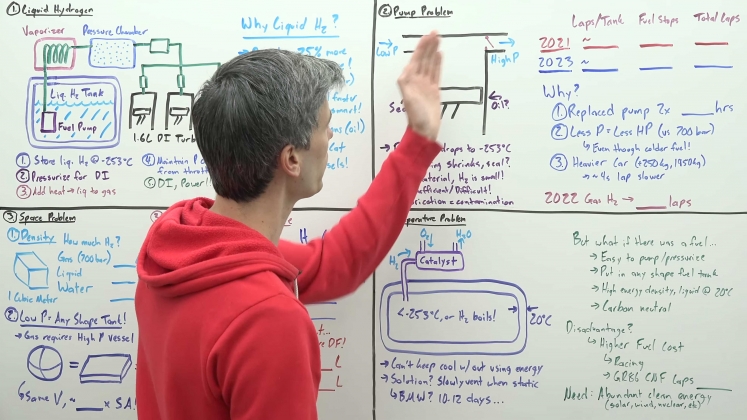 ① Liquid Hydrogen
Vaporizer
Pressure Chamber
Liq. H₂ Tank
Fuel Pump
1.6L DI Turb
① Store liq. H₂ @ -253°C
② Pressurize for DI
③ Add heat → liq to gas
④ Maintain P
from thrott
⑤ DI, Power!
Why Liquid H₂?
25% more
② Pump Problem
Low P
High P
Se
O:?
drops to -253°C
shrinks, seal?
aterial, H₂ is small!
fficient/Difficult!
ication = contamination
Laps/Tank Fuel Stops Total Laps
2021 ~
2023 ~
Why?
① Replaced pump 2x ___hrs
② Less P = Less HP (vs 700 bar)
↳ Even though colder fuel!
③ Heavier Car (+250kg, 1950kg)
→ ~4s lap slower
2022 Gas H₂ → ___ laps
③ Space Problem
① Density How much H₂?
Gas (700 bar)
Liquid
Water
1 Cubic Meter
② Low P = Any Shape Tank!
→ Gas requires High P vessel
↳ Same V, ~ ___ x SA!
DF!
L
L
perature Problem
O₂
H₂O
H₂
Catalyst
<-253°C, or H₂ boils!
20°C
→ Can't keep cool w/out using energy
→ Solution? Slowly vent when static
↳ BMW? 10-12 days...
But what if there was a fuel...
→ Easy to pump/pressurize
→ Put in any shape fuel tank
→ High energy density, liquid @ 20°C
→ Carbon neutral
Disadvantage?
↳ Higher Fuel Cost
↳ Racing
→ GR86 CNF Laps ___
Need: Abundant clean energy
(solar, wind, nuclear, etc)